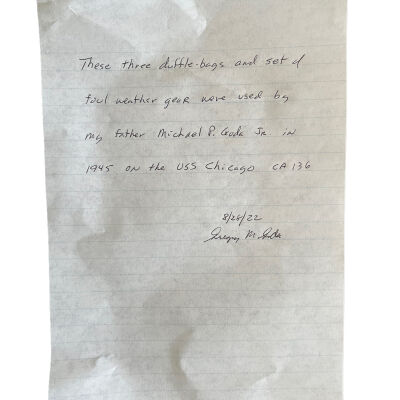 These three duffle-bags and set of
foul weather gear were used by
my father Michael P. Goda Jr. in
1945 on the USS Chicago CA 136
8/28/22
Gregory M. Goda